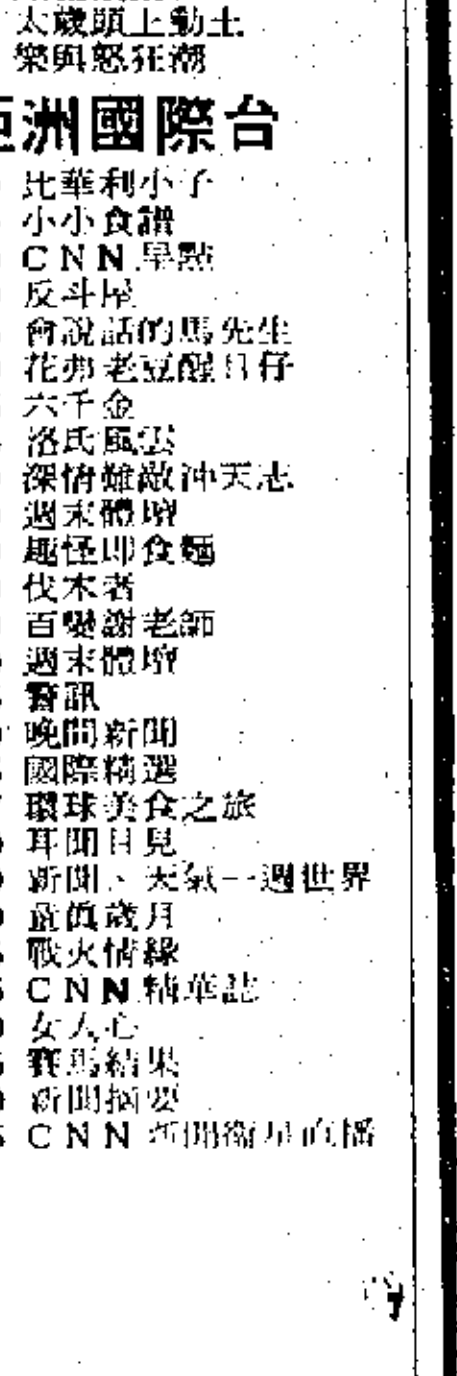 太歲頭上動土
樂與怒狂潮
亞洲國際台
比華利小子
小小食譜
CNN早點
反斗屋
會說話的馬先生
花弗老豆醒目仔
六千金
洛氏風雲
深情難敵沖天志
週末體壇
趣怪即食麵
伐木者
百變謝老師
週末體壇
警訊
晚間新聞
國際精選
環球美食之旅
耳聞目見
新聞、天氣一週世界
歲月
戰火情緣
CNN精華誌
女人心
賽馬結果
新聞摘要
CNN新聞衛星直播